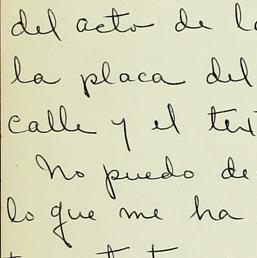 del acto de l
la placa del
calle y el tex
No puedo de
lo que me ha